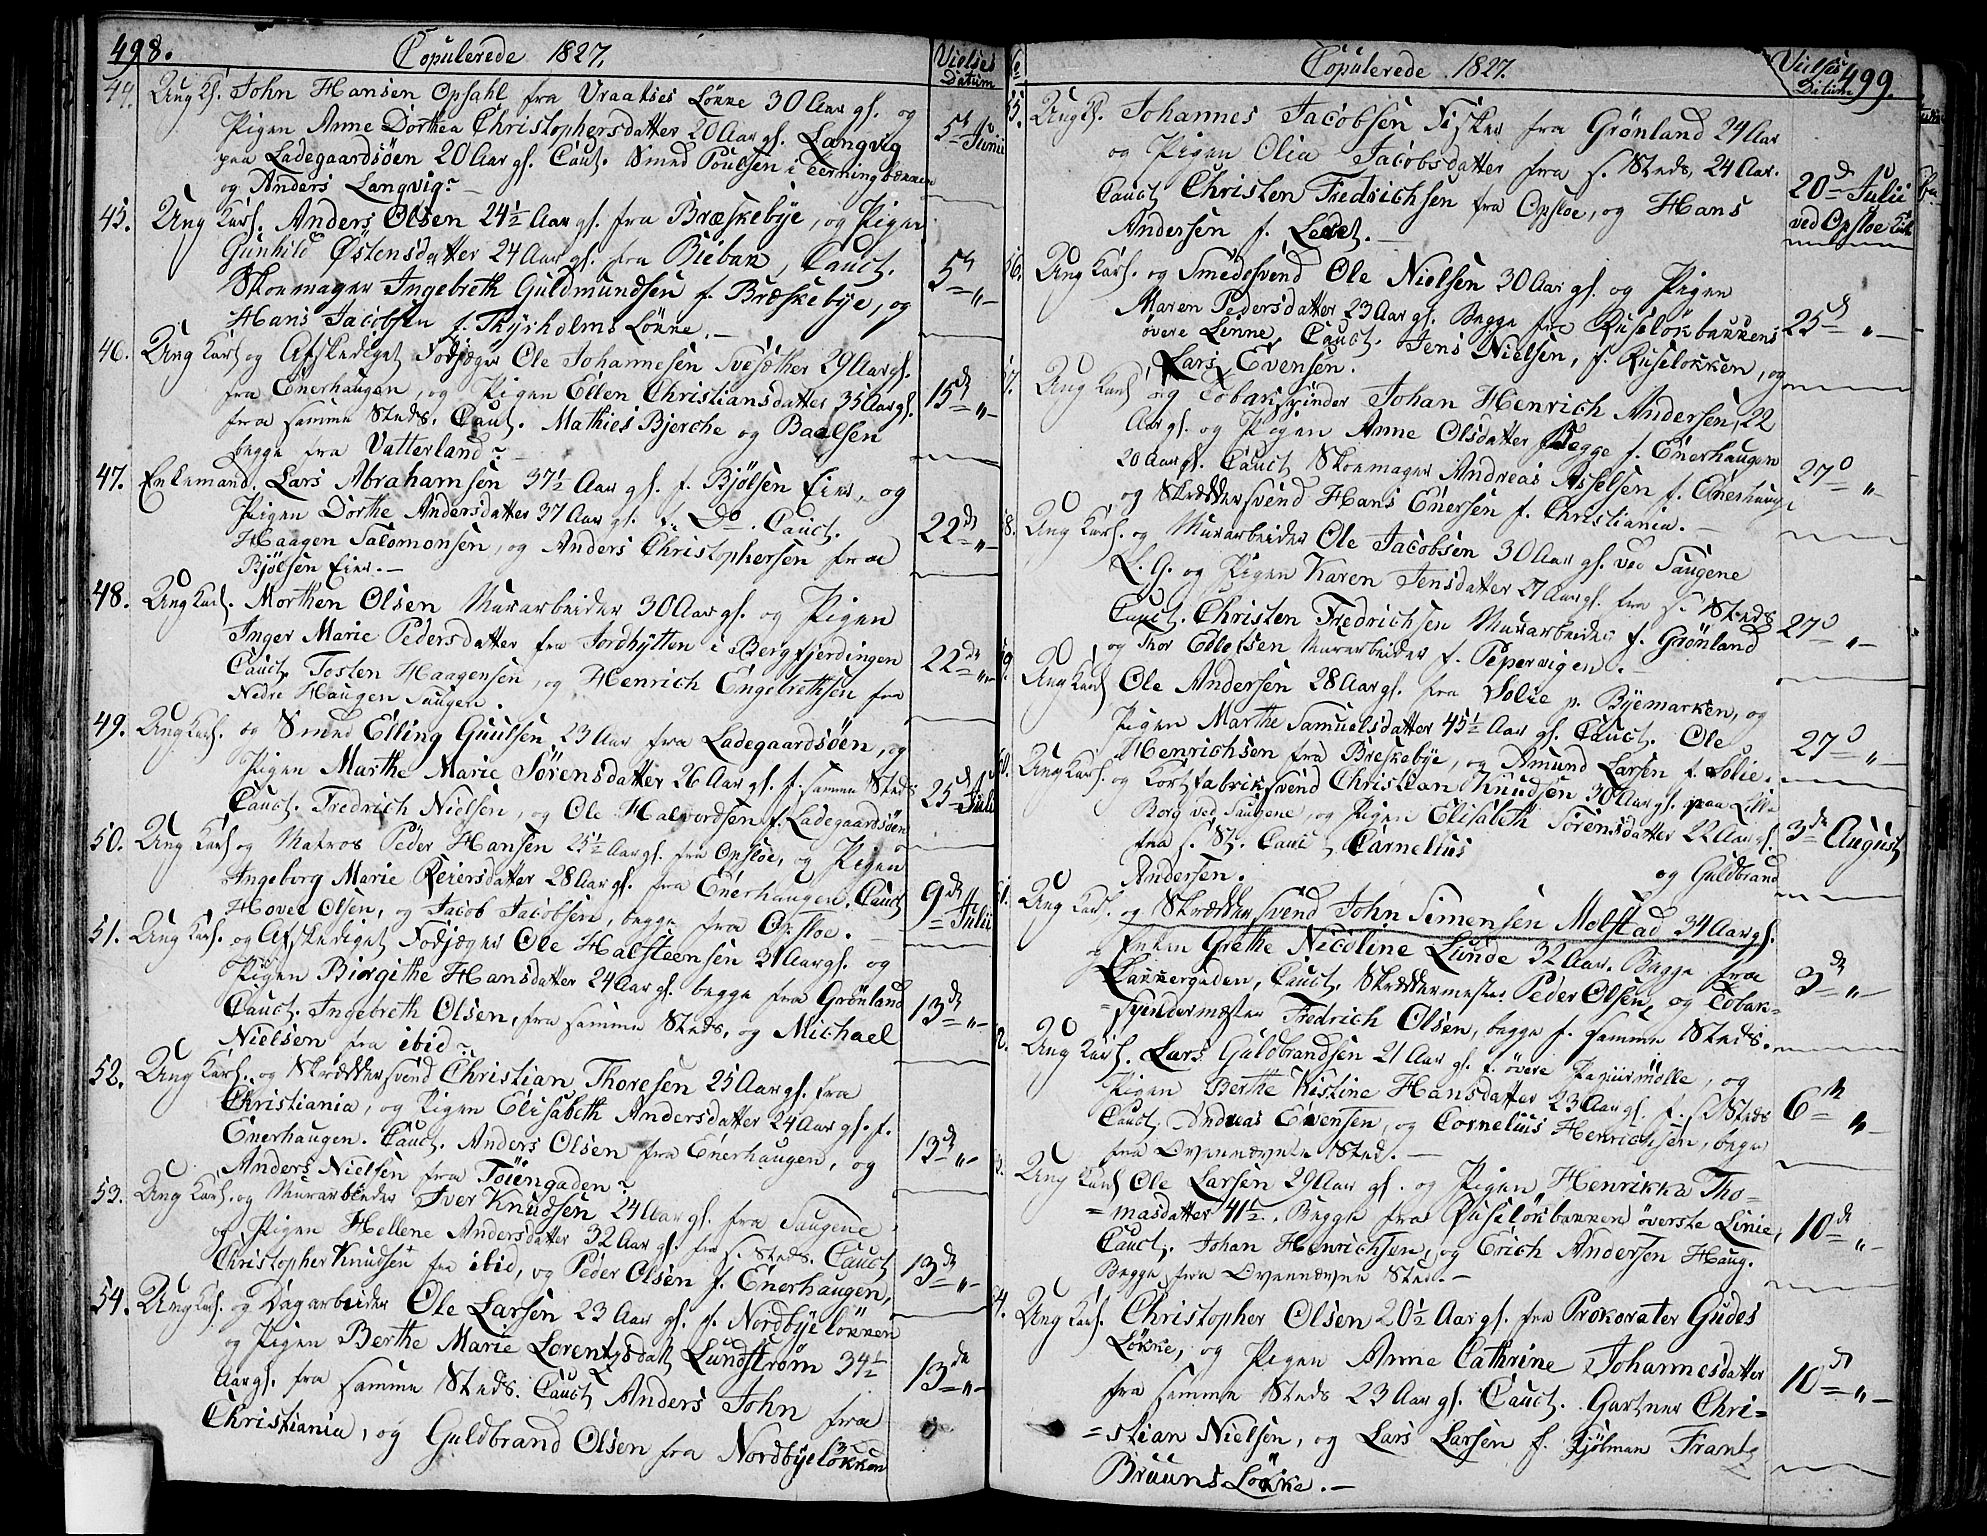 498.
Copulerede 1827.
Vielses Datum
44. Ung K. John Hansen Opsahl fra Vraatses Lønne 30 Aar gl. og
Pigen Anne Dorthea Christophersdatter 20 Aar gl. Langvig
paa Ladegaardsöen 20 Aar gl. Cauct. Smed Poulsen i
og Anders Langvig.
5te Junii
45. Ung Karl. Anders Olsen 24½ Aar gl. fra Bræskebÿe, og Pigen
Gunhild Østensdatter 24 Aar gl. fra Bieban, Cauct.
Skoemager Ingebreth Guldmundsen f. Bræskebÿe, og
Hans Jacobsen f. Thÿrholms Lönne.
5te "
46. Ung Karl og Afskediget Fodjæger Ole Johannesen Svesæther 29 Aar gl.
fra Enerhaugen, og Pigen Ellen Christiansdatter 35 Aar gl.
fra samme Steds. Cauct. Mathies Bjerche og Baalsen
begge fra Vatterland.
15de "
47. Enkemand. Lars Abrahamsen 37½ Aar gl. f. Bjölsen Eier, og
Pigen Dorthe Andersdatter 37 Aar gl. f. Do. Cauct.
Haagen Salomonsen, og Anders Christophersen fra
Bjölsen Eier.
22de "
48. Ung Karl. Morthen Olsen Murarbeider 30 Aar gl. og Pigen
Inger Marie Pedersdatter fra Jordhÿtten i Bergfjerdingen
Cauct. Tosten Haagensen, og Henrich Engebrethsen fra
Nedre Haugen Saugen.
22de "
49. Ung Karl. og Smed Elling Guulsen 23 Aar fra Ladegaardsöen, og
Pigen Marthe Marie Sörensdatter 26 Aar gl. f. samme Steds
Cauct. Fredrich Nielsen, og Ole Halvordsen f. Ladegaardsöen
25de Juli
50. Ung Karl og Matros Peder Hansen 25½ Aar gl. fra Opsloe, og Pigen
Ingeborg Marie Reiersdatter 28 Aar gl. fra Enerhaugen. Cauct
Hover Olsen, og Jacob Jacobsen, begge fra Opsloe.
9de Julii
51. Ung Karl. og Afskediget Fodjæger Ole Halsteensen 31 Aar gl. og
Pigen Birgithe Hansdatter 24 Aar gl. begge fra Grönland
Cauct. Ingebreth Olsen, fra samme Steds, og Michael
Nielsen fra ibid
13de "
52. Ung Karl. og Skræddersvend Christian Thoresen 25 Aar gl. fra
Christiania, og Pigen Elisabeth Andersdatter 24 Aar gl. f.
Enerhaugen. Cauct. Anders Olsen fra Enerhaugen, og
Anders Nielsen fra Töiengaden
13de "
53. Ung Karl. og Murarbeider Iver Knudsen 24 Aar gl. fra Saugene
og Pigen Hellene Andersdatter 32 Aar gl. fra s. Steds. Cauct
Christopher Knudsen fra ibid, og Peder Olsen f. Enerhaugen,
13de "
54. Ung Karl. og Dagarbeider Ole Larsen 23 Aar gl. f. Nordbÿelökken
og Pigen Berthe Marie Lorentzsdatt Lundström 34½
Aar gl. fra samme Steds. Cauct Anders John fra
Christiania, og Guldbrand Olsen fra Nordbÿelökken
13de "
Copulerede 1827.
Vielses Datum
499.
55. Ung K. Johannes Jacobsen Fisker fra Grønland 24 Aar
og Pigen Olia Jacobsdatter fra s. Steds, 24 Aar.
Cauct Christen Fredrichsen fra Opsloe, og Hans
Andersen f. Ledet.
20de Julii
ved Opsloe
56. Ung Karl. og Smedesvend Ole Nielsen 30 Aar gl. og Pigen
Maren Pedersdatter 23 Aar gl. Begge fra Ruselökbakkens
övere Linne, Cauct. Jens Nielsen, f. Ruselökken, og
Lars Evensen.
25de "
57. Ung Karl og Tobakspinder Johan Henrich Andersen, 22
Aar gl. og Pigen Anne Olsdatter Begge f. Enerhaugen
20 Aar gl. Cauct Skoemager Andreas Asselsen f. Enerhaug
og Skræddersvend Hans Enersen f. Christiania.
27de "
58. Ung Karl. og Murarbeider Ole Jacobsen 30 Aar gl. ved Saugene
L. G. og Pigen Karen Jensdatter 27 Aar gl. fra s. Steds
Cauct. Christen Fredrichsen Murarbeider f. Grönland
og Thor Edlefsen Murarbeider f. Pepervigen.
27de "
59. Ung Karl Ole Andersen 28 Aar gl. fra Solie p. Bÿemarken, og
Pigen Marthe Samuelsdatter 45½ Aar gl. Cauct. Ole
Henrichsen fra Breskebÿe, og Amund Larsen f. Solie.
27de "
60. Ung Karl. og Kortfabriksvend Christian Knudsen 30 Aar gl. paa Lille
Borg ved Saugene, og Pigen Elisabeth Sörensdatter 22 Aar gl.
fra s. St. Cauct Carnelius
og Guldbrand
Andersen.
3de August
61. Ung Karl. og Skræddersvend John Simensen Molstad 34 Aar gl.
og Enken Grethe Nicoline Lunde 32 Aar. Begge fra
Lakkergaden, Cauct. Skræddermester Peder Olsen, og Tobak=
=spindermester Fredrich Olsen, begge f. samme Steds.
3de "
62. Ung Karl. Lars Guldbrandsen 21 Aar gl. f. övere Papiirmölle, og
Pigen Berthe Kistine Hansdatter 23 Aar gl. f. s. Steds
Cauct Andreas Evensen, og Cornelius Henrichsen, begge
fra Ovennævnte Sted.
6te "
63. Ung Karl Ole Larsen 29 Aar gl. og Pigen Henrikka Tho=
=masdatter 41½. Begge fra Ruselökbakken överste Linie,
Cauct. Johan Henrichsen, og Erich Andersen Haug.
Begge fra Ovennævnte Sted.
10de "
64. Ung Karl. Christopher Olsen 20½ Aar gl. fra Prokorater Gudes
Lökke, og Pigen Anne Cathrine Johannesdatter
fra samme Steds 23 Aar gl. Cauct. Gartner Chri=
=stian Nielsen, og Lars Larsen f. Kjöbman Frantz
Bruuns Lökke.
10de "